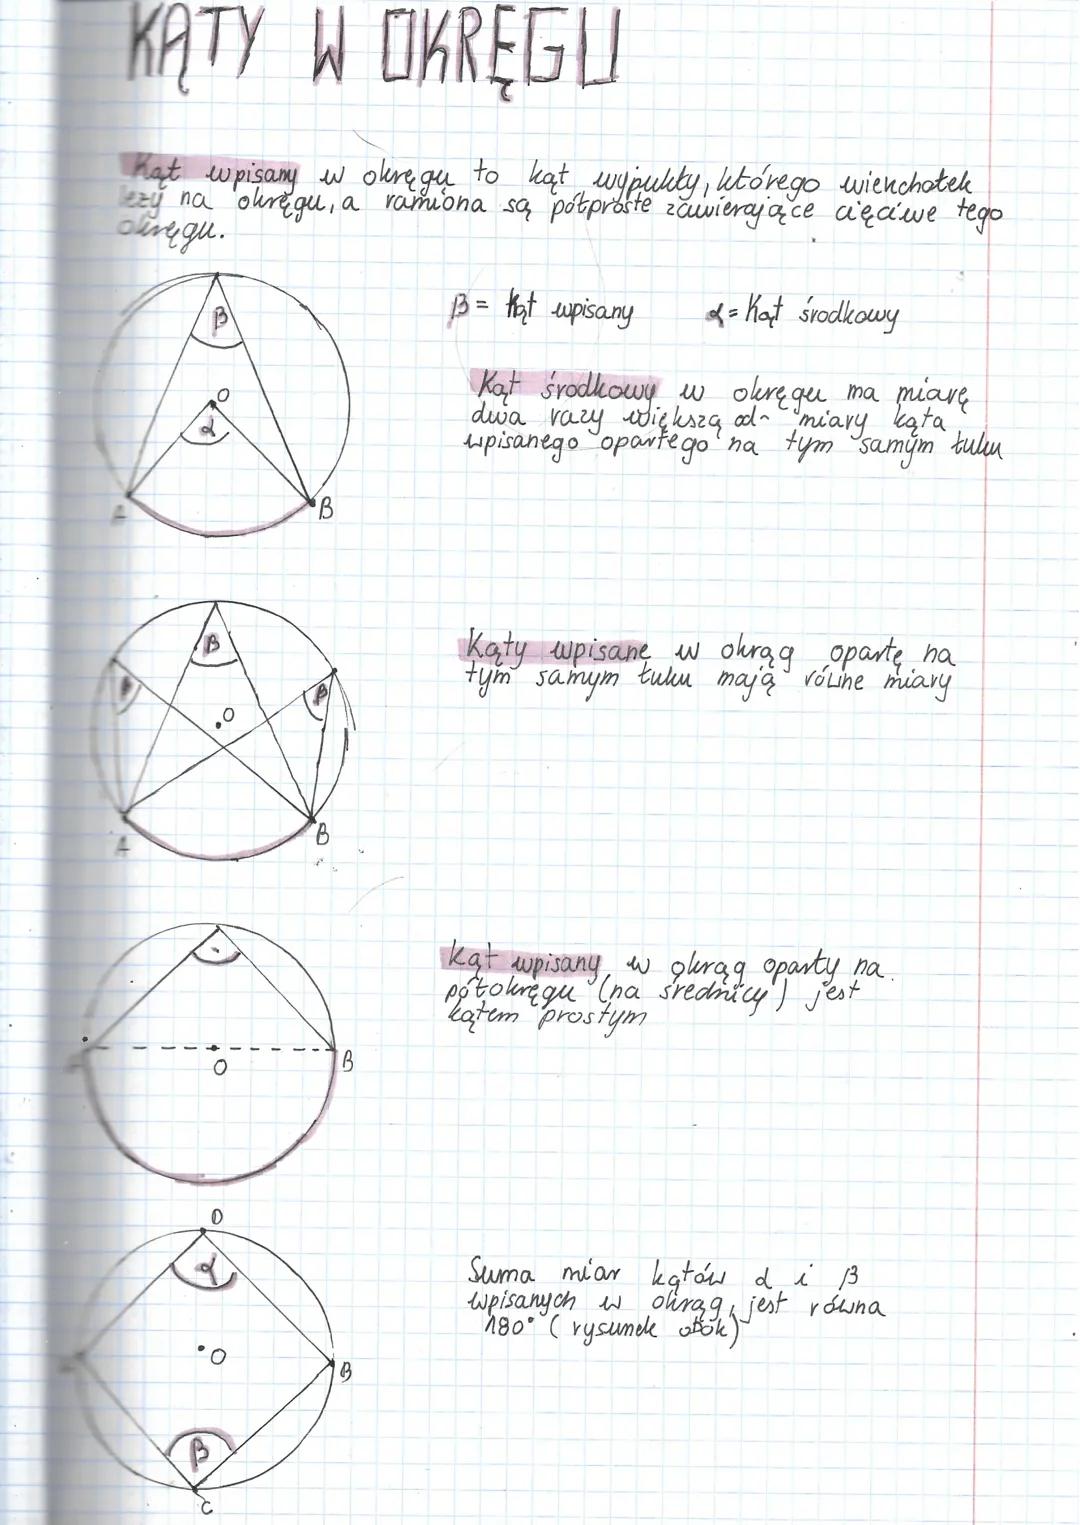 KĄTY W OKRĘGU
Kąt wpisany w okręgu to kąt wypukły, którego wierzchołek
leży na okręgu, a ramiona są półproste zawierające cięciwe tego
okręgu.
β
β = Kąt wpisany α = Kąt środkowy
Kąt środkowy w okręgu ma miarę
O
dwa razy większą od miary kąta
α
wpisanego opartego na tym samym łuku
A B
β
Kąty wpisane w okrąg opartę na
tym samym łuku mają równe miary
β β
O
A B
Kąt wpisany w okrąg oparty na
półokręgu (na średnicy) jest
kątem prostym
A B
O
D
α
Suma miar kątów α i β
wpisanych w okrąg, jest równa
180° (rysunek obok)
O
A B
β
C